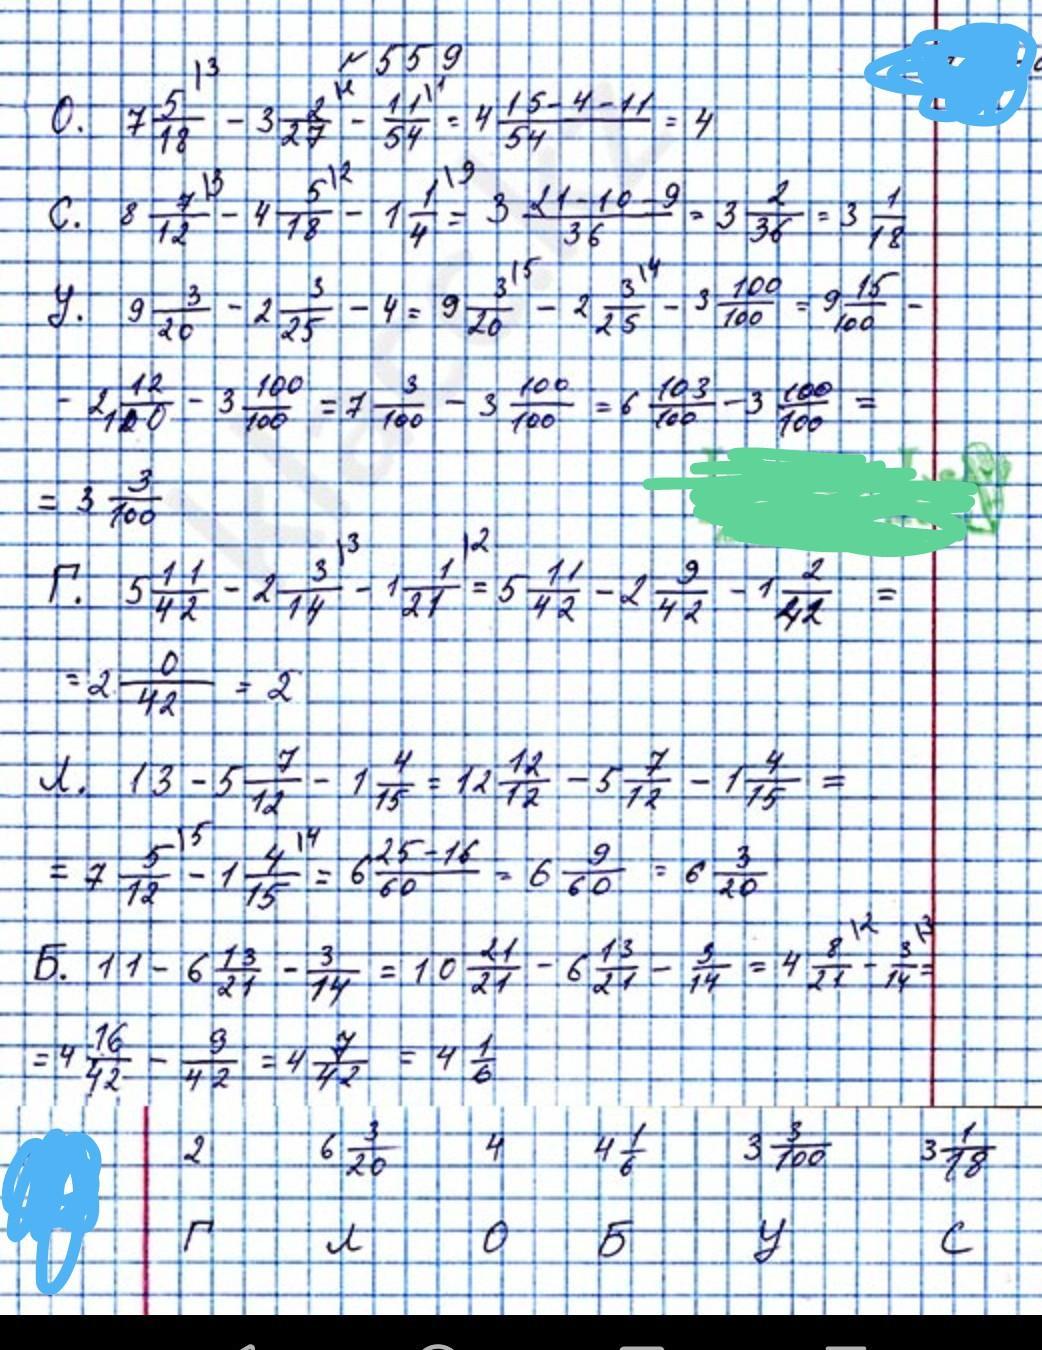 №559
О. 7 5/18 |3 - 3 2/27 |2 - 11/54 |1 = 4 15-4-11/54 = 4
С. 8 7/12 |3 - 4 5/18 |2 - 1 1/4 |9 = 3 21-10-9/36 = 3 2/36 = 3 1/18
У. 9 3/20 - 2 3/25 - 4 = 9 3/20 |5 - 2 3/25 |4 - 3 100/100 = 9 15/100 -
- 2 12/100 - 3 100/100 = 7 3/100 - 3 100/100 = 6 103/100 - 3 100/100 =
= 3 3/100
Г. 5 11/42 - 2 3/14 |3 - 1 1/21 |2 = 5 11/42 - 2 9/42 - 1 2/42 =
= 2 0/42 = 2
Л. 13 - 5 7/12 - 1 4/15 = 12 12/12 - 5 7/12 - 1 4/15 =
= 7 5/12 |5 - 1 4/15 |4 = 6 25-16/60 = 6 9/60 = 6 3/20
Б. 11 - 6 13/21 - 3/14 = 10 21/21 - 6 13/21 - 3/14 = 4 8/21 |2 - 3/14 |3 =
= 4 16/42 - 9/42 = 4 7/42 = 4 1/6
2 6 3/20 4 4 1/6 3 3/100 3 1/18
Г Л О Б У С